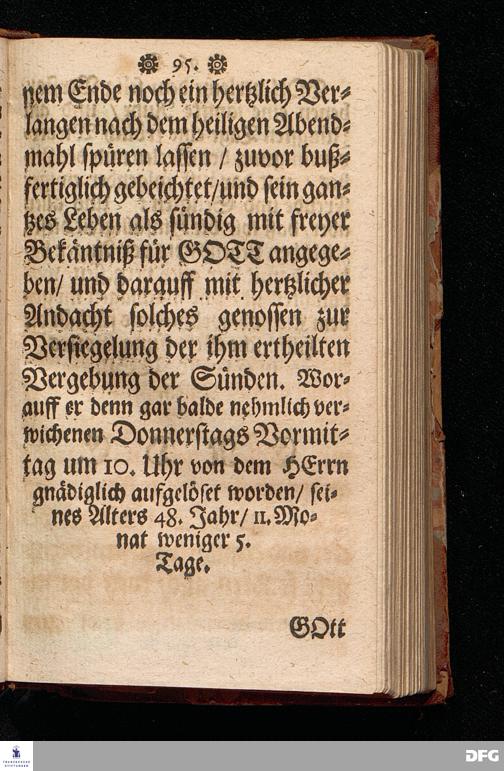 95.
nem Ende noch ein hertzlich Ver-
langen nach dem heiligen Abend-
mahl spüren lassen / zuvor buß-
fertiglich gebeichtet/und sein gan-
tzes Leben als sündig mit freyer
Bekäntniß für GOTT angege-
ben/ und darauff mit hertzlicher
Andacht solches genossen zur
Versiegelung der ihm ertheilten
Vergebung der Sünden. Wor-
auff er denn gar balde nehmlich ver-
wichenen Donnerstags Vormit-
tag um 10. Uhr von dem HErrn
gnädiglich aufgelöset worden/ sei-
nes Alters 48. Jahr/ 11. Mo-
nat weniger 5.
Tage.
GOtt
FRANCKESCHE
STIFTUNGEN
DFG